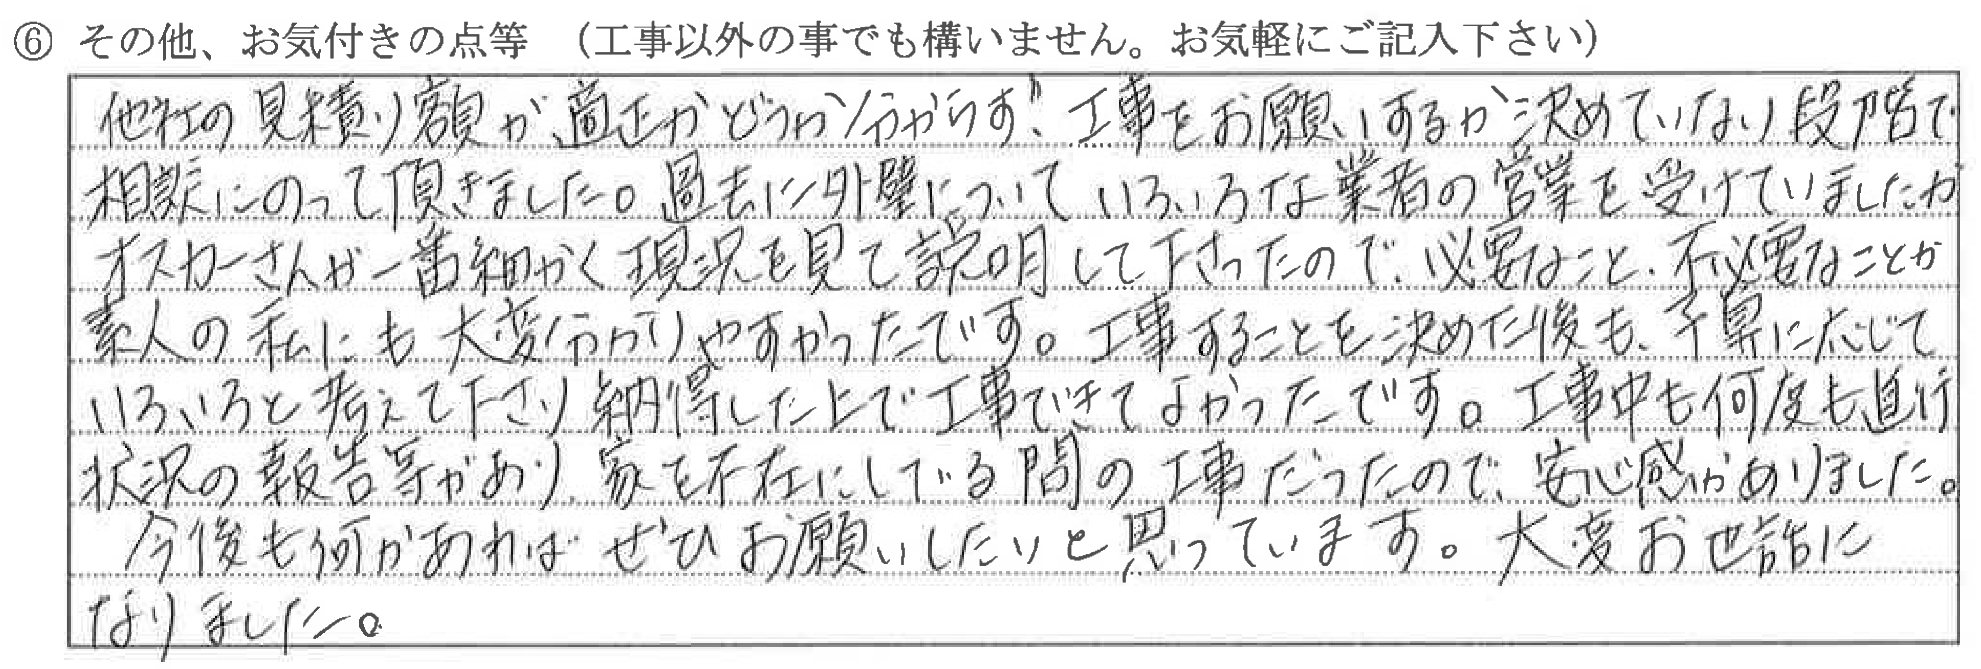 ⑥ その他、お気付きの点等 (工事以外の事でも構いません。お気軽にご記入下さい)
他社の見積り額が、適正かどうか分からず、工事をお願いするか決めていない段階で
相談にのって頂きました。過去に外壁についていろいろな業者の営業を受けていましたが
オスカーさんが一番細かく現況を見て説明して下さったので、必要なこと、不必要なことが
素人の私にも大変分かりやすかったです。工事することを決めた後も、予算に応じて
いろいろと考えて下さり納得した上で工事できてよかったです。工事中も何度も進行
状況の報告等があり、家を不在にしている間の工事だったので、安心感がありました。
今後も何かあればぜひお願いしたいと思っています。大変お世話に
なりました。